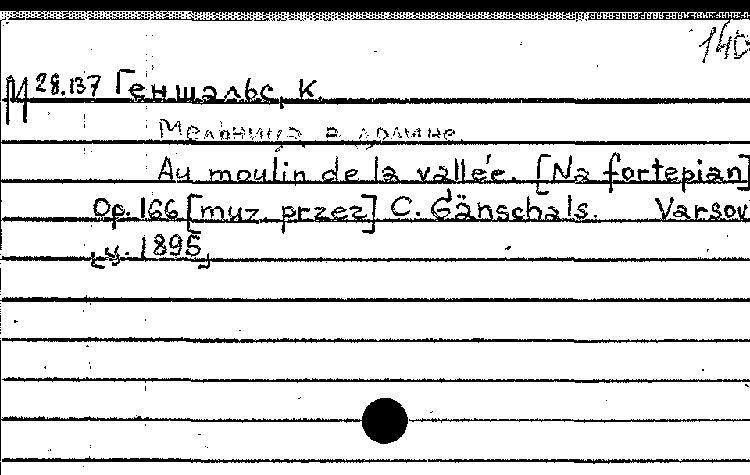 140
M 28.137 Геншальс, К.
Мельница в долине.
Au moulin de la vallée. [Na fortepian]
Op. 166 [muz. przez] C. Gänschals. Varsov
[ч. 1895]